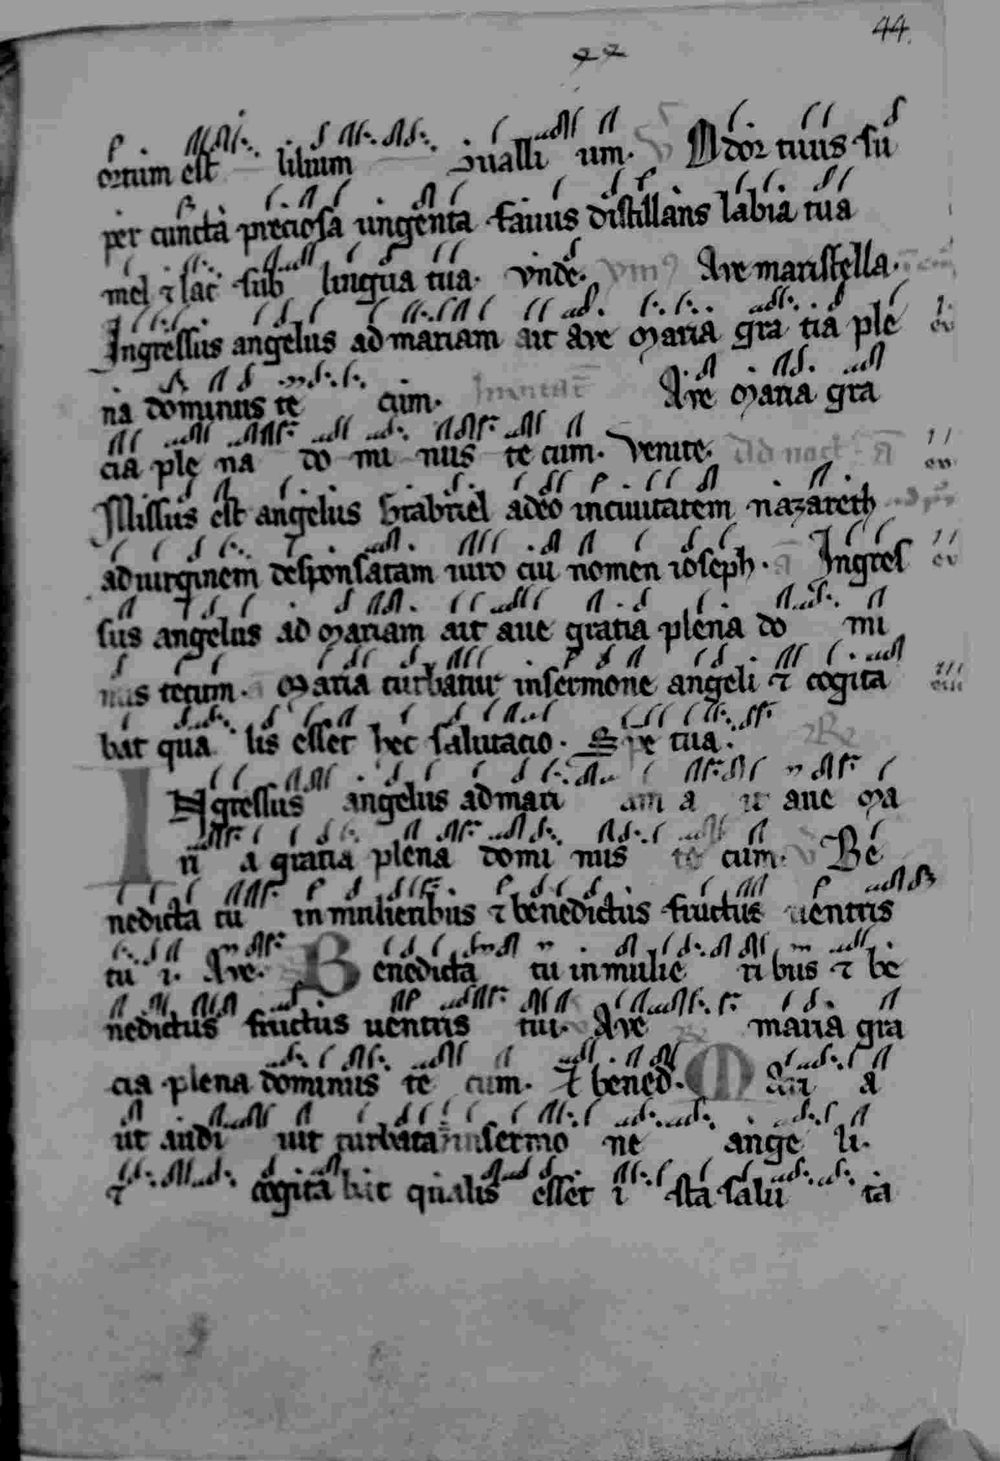 44.
ortum est lilium Jualli um. V Odor tuus su
per cuncta preciosa ungenta fauus distillans labia tua
mel ⁊ lac sub lingua tua. Unde. ymꝰ Ave maristella.
Ingressus angelus ad mariam ait ave maria gra tia ple
na dominus te cum. Inuitat Ave maria gra
cia ple na do mi nus te cum. Venite. Ad noct. A
Missus est angelus Gabriel ad eo in ciuitatem nazareth
ad uirginem desponsatam uiro cui nomen ioseph. a Ingres
sus angelus ad mariam ait aue gratia plena do mi
nus tecum. a Maria turbatur in sermone angeli ⁊ cogita
bat qua lis esset hec salutacio. Spe tua. R
INgressus angelus ad mari am a it aue ma
ri a gratia plena domi nus te cum. V Be
nedicta tu in mulieribus ⁊ benedictus fructus uentris
tu i. Ave. Benedicta tu in mulie ri bus ⁊ be
nedictus fructus uentris tui. V Ave maria gra
cia plena dominus te cum. ⁊ bened. Mari a
ut audi uit turbata in sermo ne ange li.
⁊ cogita bat qualis esset i sta salu ta